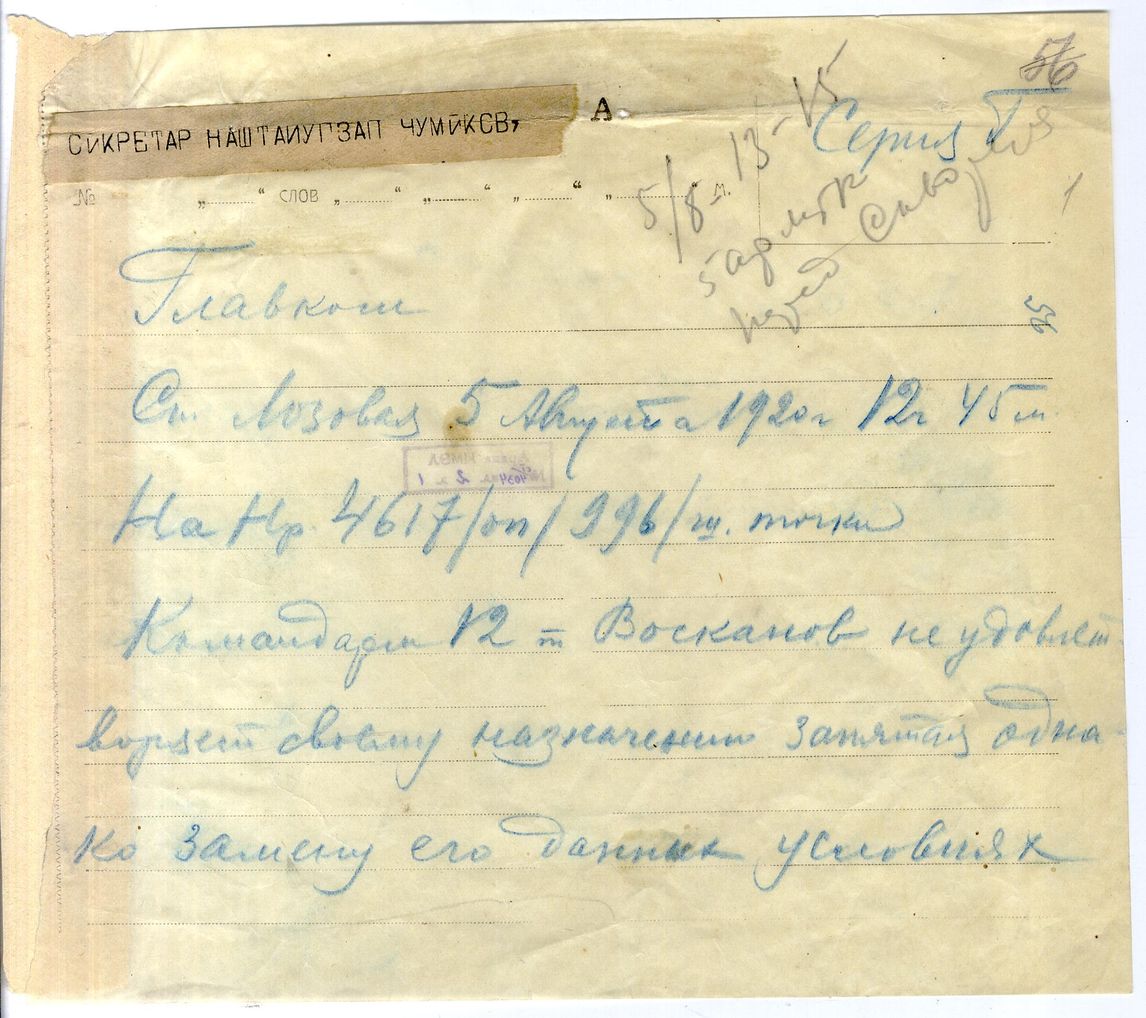 56
СИКРЕТАР НАШТАИУГЗАП ЧУМИКСВ,
А
Серия Г
5/8 - 13 - 15
1
№ „ “ слов „ “ „ “ „ “ „ “ м.
Главком
25
Ст. Лозовая 5 Августа 1920 г 12 ч 45 м.
На Нр 4617/оп/996/ш. точка
Командарм 12 т Восканов не удовлет-
воряет своему назначению запятая одна-
ко замену его данных условиях